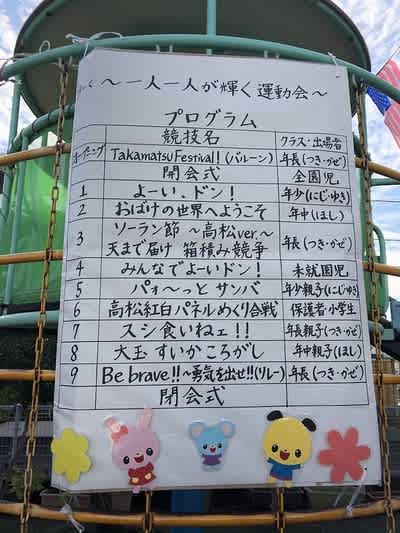 ～一人一人が輝く運動会～
プログラム
競技名 クラス・出場者
オープニング Takamatsu Festival!! (バルーン) 年長(つき・かぜ)
開会式 全園児
1 よーい、ドン! 年少(にじ・ゆき)
2 おばけの世界へようこそ 年中(ほし)
3 ソーラン節 ～高松ver.～
天まで届け 箱積み競争 年長(つき・かぜ)
4 みんなでよーいドン! 未就園児
5 パォ～っと サンバ 年少親子(にじ・ゆき)
6 高松紅白パネルめくり合戦 保護者・小学生
7 スシ食いねェ!! 年長親子(つき・かぜ)
8 大玉 すいかころがし 年中親子(ほし)
9 Be brave!!~勇気を出せ!!(リレー) 年長(つき・かぜ)
閉会式